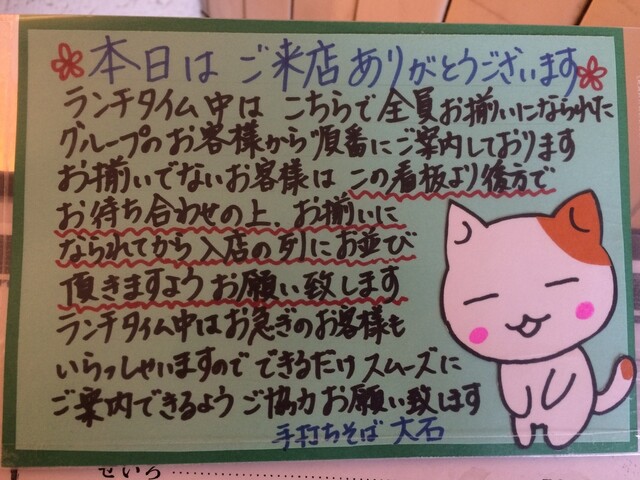 本日はご来店ありがとうございます
ランチタイム中は こちらで全員お揃いになられた
グループのお客様から順番にご案内しております
お揃いでないお客様は この看板より後方で
お待ち合わせの上、お揃いに
なられてから入店の列にお並び
頂きますようお願い致します
ランチタイム中はお急ぎのお客様も
いらっしゃいますので できるだけ スムーズに
ご案内できるよう ご協力 お願い致します
手打ちそば 大石
せいろ